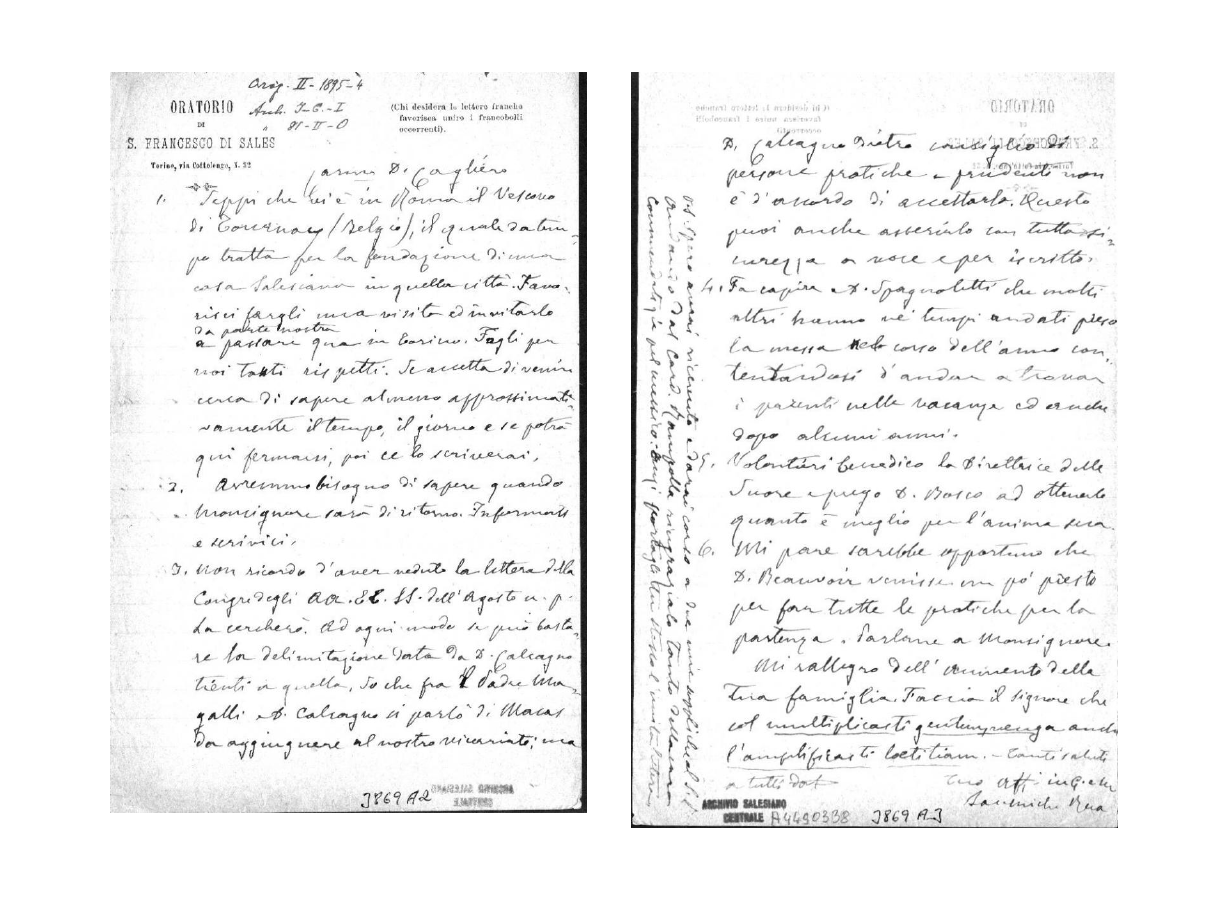 Orig. II - 1895-4
ORATORIO
DI
S. FRANCESCO DI SALES
Torino, via Cottolengo, N. 32
Arch. I-C-I
81-II-O
(Chi desidera le lettere franche
favorisca unire i francobolli
occorrenti).
Carmo D. Cagliero
1. Seppi che vi è in Roma il Vescovo
di Tournay (Belgio), il quale da tem-
po tratta per la fondazione di una
casa Salesiana in quella città. Favo-
risci fargli una visita ed invitarlo
da parte nostra
a passare qua in Torino. Fagli per
noi tanti rispetti. Se accetta di venire
cerca di sapere almeno approssimati-
vamente il tempo, il giorno e se potrà
qui fermarsi, poi ce lo scriverai.
2. Avremmo bisogno di sapere quando
Monsignore sarà di ritorno. Informati
e scrivici.
3. Non ricordo d'aver veduto la lettera della
Congr. degli AA. EE. SS. dell'Agosto u. p.
La cercherò. Ad ogni modo se può basta-
re la delimitazione data da D. Calcagno
tienti a quella. So che fra il Padre Ma-
galli e D. Calcagno si parlò di Macas
da aggiungere al nostro vicariato; ma
J869 A2
ARCHIVIO SALESIANO
CENTRALE
D. Calcagno dietro consiglio di
persone pratiche e prudenti non
è d'accordo di accettarlo. Questo
puoi anche asserirlo con tutta si-
curezza a voce e per iscritto.
4. Fa capire a D. Spagnoletti che molti
altri hanno ne' tempi andati preso
la messa nel corso dell'anno con-
tentandosi d'andar a trovar
i parenti nelle vacanze ed anche
dopo alcuni anni.
5. Volontieri benedico la Direttrice delle
Suore e prego D. Bosco ad ottenerle
quanto è meglio per l'anima sua.
6. Mi pare sarebbe opportuno che
D. Beauvoir venisse un po' presto
per far tutte le pratiche per la
partenza. Parlane a Monsignore.
Mi rallegro dell' aumento della
tua famiglia. Faccia il Signore che
col multiplicasti gentem venga anche
l'amplificasti laetitiam. - Tanti saluti
a tutti da
Tuo aff. in G. e M.
Sac. Michele Rua
PS. Spero avrai ricevuto e darai corso a due mie suppliche al S. P.
Andando dal Card. Rampolla ringrazialo tanto della cara
ARCHIVIO SALESIANO
CENTRALE
A4490338
J869 A3